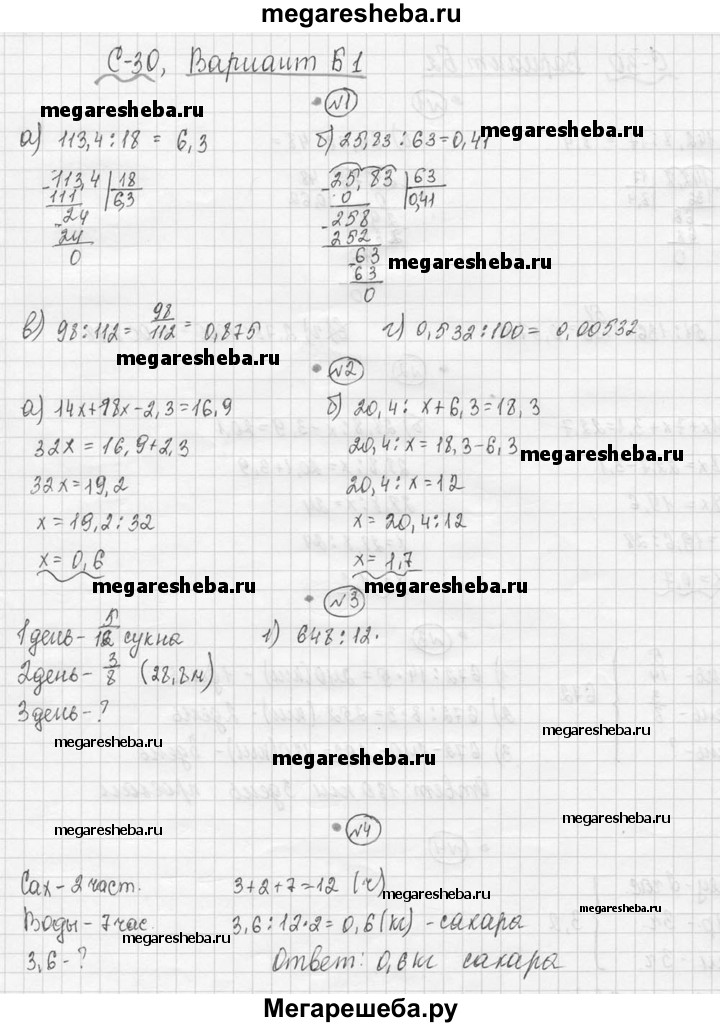 megaresheba.ru
С-30, Вариант Б1
megaresheba.ru
№1
а) 113,4:18 = 6,3
б) 25,83:63=0,41
megaresheba.ru
113,4 | 18
111 | 6,3
24
24
0
25,83 | 63
0 | 0,41
258
252
63
63
0
megaresheba.ru
в) 98:112= 98/112 = 0,875
г) 0,532:100= 0,00532
megaresheba.ru
№2
а) 14х+18х-2,3=16,9
32х = 16,9+2,3
32х=19,2
х=19,2:32
х=0,6
б) 20,4: х+6,3=18,3
20,4:х = 18,3-6,3
megaresheba.ru
20,4: х=12
х= 20,4:12
х= 1,7
megaresheba.ru
megaresheba.ru
№3
1день- 5/12 сукна
2день- 3/8 (28,8м)
3день-?
1) 648:12·
megaresheba.ru
megaresheba.ru
megaresheba.ru
megaresheba.ru
megaresheba.ru
№4
Сах-2част.
Воды-7час.
3,6-?
3+2+7=12 (ч)
megaresheba.ru
3,6:12·2=0,6(кг) -сахара
megaresheba.ru
megaresheba.ru
Ответ: 0,6кг сахара
Мегарешеба.ру